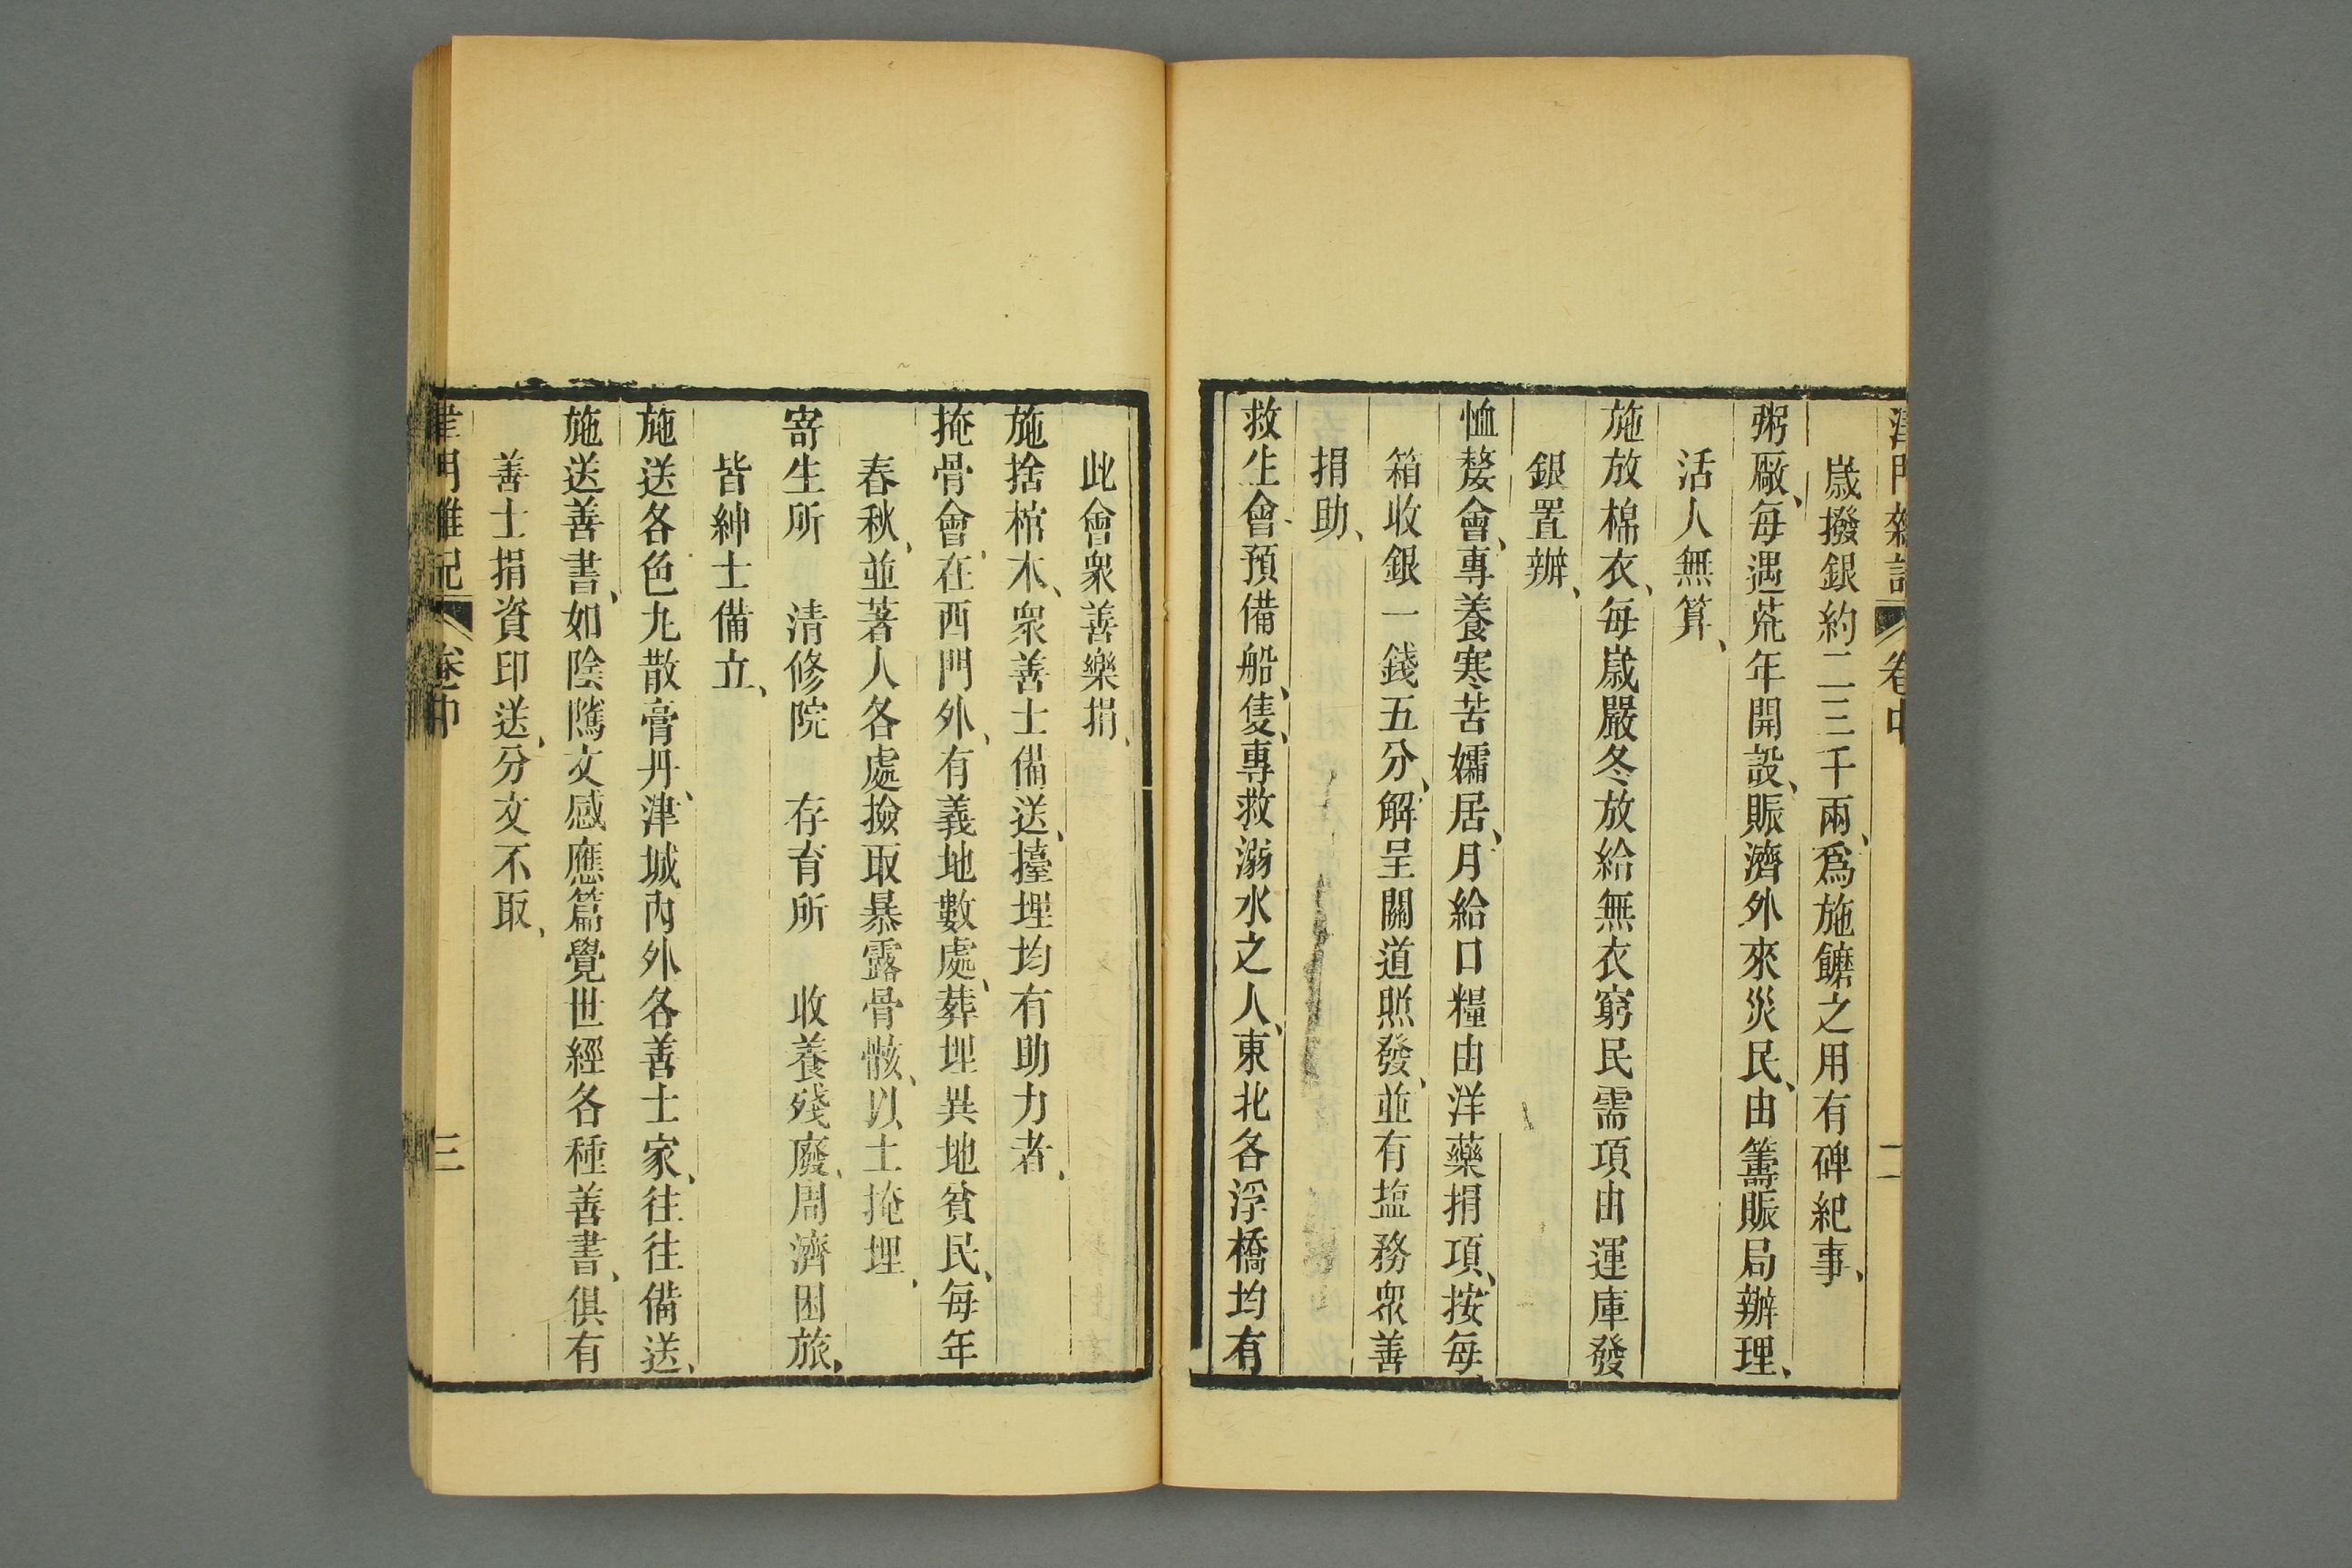 津門雜記 卷中 二
歲撥銀約二三千兩、爲施饘之用有碑紀事、
粥廠、每遇荒年開設、賑濟外來災民、由籌賑局辦理、
活人無算、
施放棉衣、每歲嚴冬放給無衣窮民需項由運庫發
銀置辦、
恤嫠會、專養寒苦孀居、月給口糧由洋藥捐項、按每
箱收銀一錢五分、解呈關道照發、並有塩務眾善
捐助、
救生會預備船隻、專救溺水之人、東北各浮橋均有
此會衆善樂捐、
施捨棺木、衆善士備送、擡埋均有助力者、
掩骨會、在西門外、有義地數處、葬埋異地貧民、每年
春秋、並著人各處撿取暴露骨骸、以土掩埋、
寄生所 清修院 存育所 收養殘廢、周濟困旅、
皆紳士備立、
施送各色丸散膏丹、津城內外各善士家、往往備送、
施送善書、如陰隲文感應篇覺世經各種善書、俱有
善士捐資印送、分文不取、
津門雜記 卷中 三